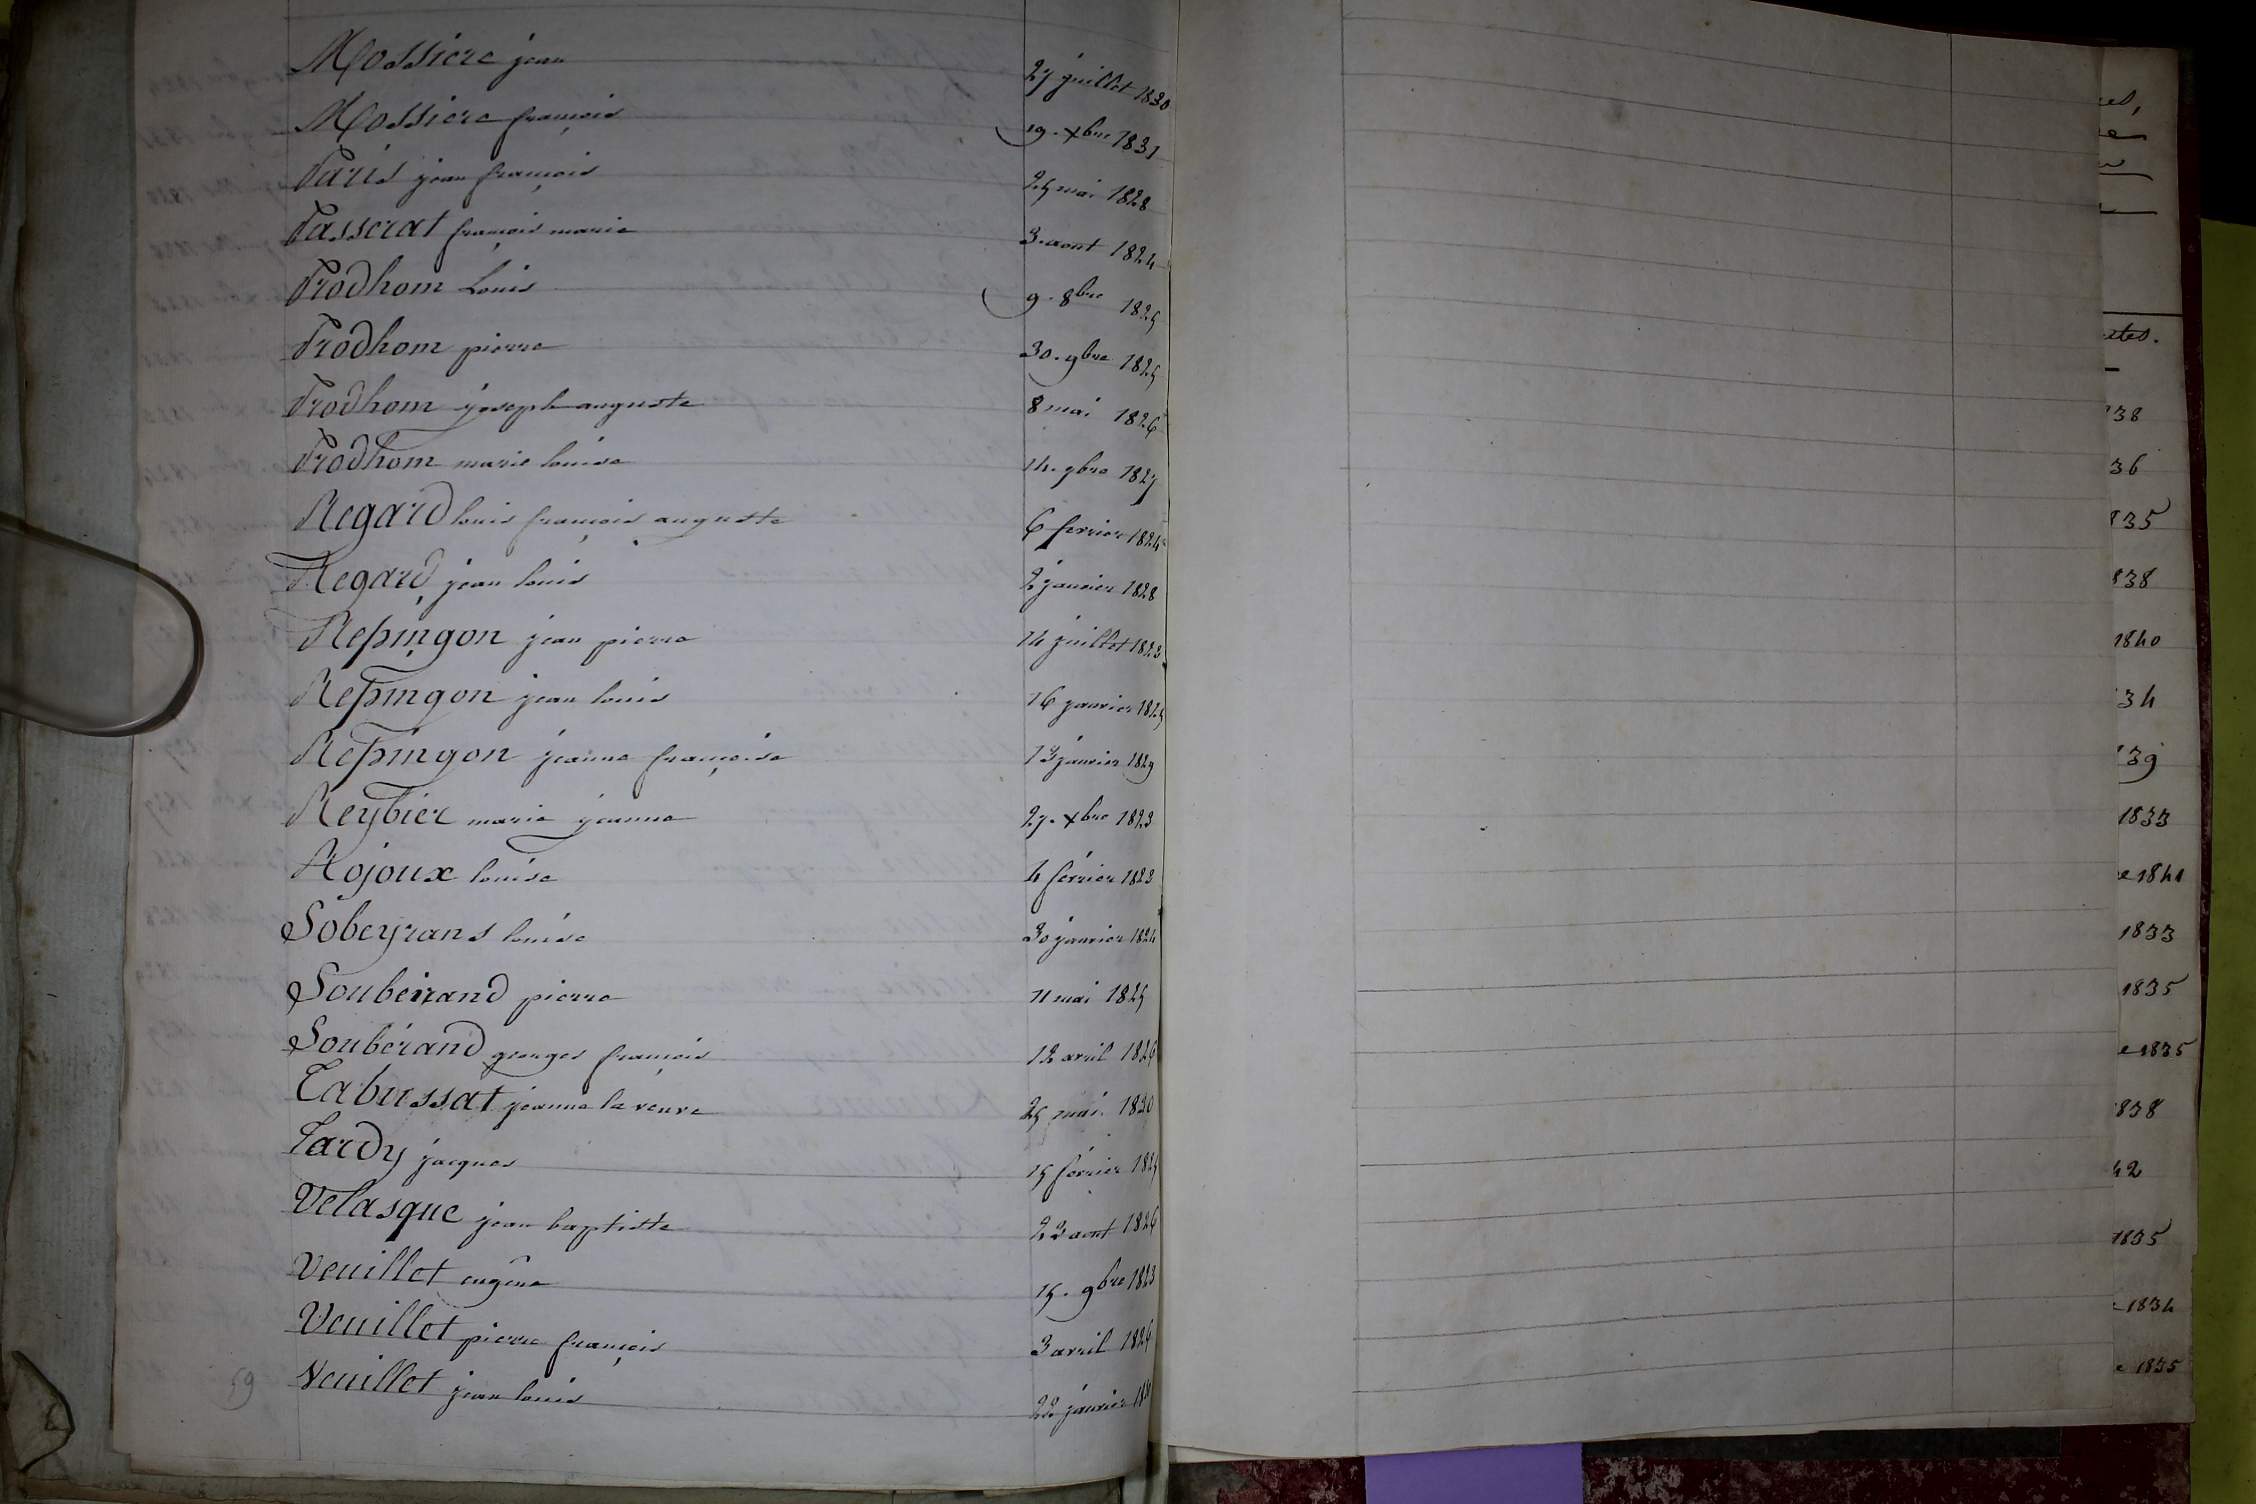 Mossiere jean 27 juillet 1830
Mossiere françois 19. xbre 1831
Paris jean françois 25 mai 1828
Passerat françois marie 3. aout 1824
Prodhom Louis 9. 8bre 1825
Prodhom pierre 30. 9bre 1825
Prodhom joseph auguste 8 mai 1826
Prodhom marie louise 14. 9bre 1827
Regard louis françois auguste 6 fevrier 1824
Regard, jean louis 2 janvier 1828
Repingon jean pierre 14 juillet 1823
Repingon jean louis 16 janvier 1825
Repingon jeanne françoise 13 janvier 1829
Reybier marie jeanne 27. xbre 1823
Rojoux louise 4 février 1823
Sobeyrans louise 30 janvier 1824
Soubeirand pierre 11 mai 1825
Soubérand georges françois 12 avril 1826
Tabussat jeanne la veuve 25 mai 1830
Tardy jacques 15 février 1825
Velasque jean baptiste 22 aout 1826
Veuillet eugêne 15. 9bre 1823
Veuillet pierre françois 3 avril 1826
Veuillet jean louis 22 janvier
59
38
36
835
838
1840
34
39
1833
e 1841
1833
1835
e 1835
838
42
1835
1834
e 1835